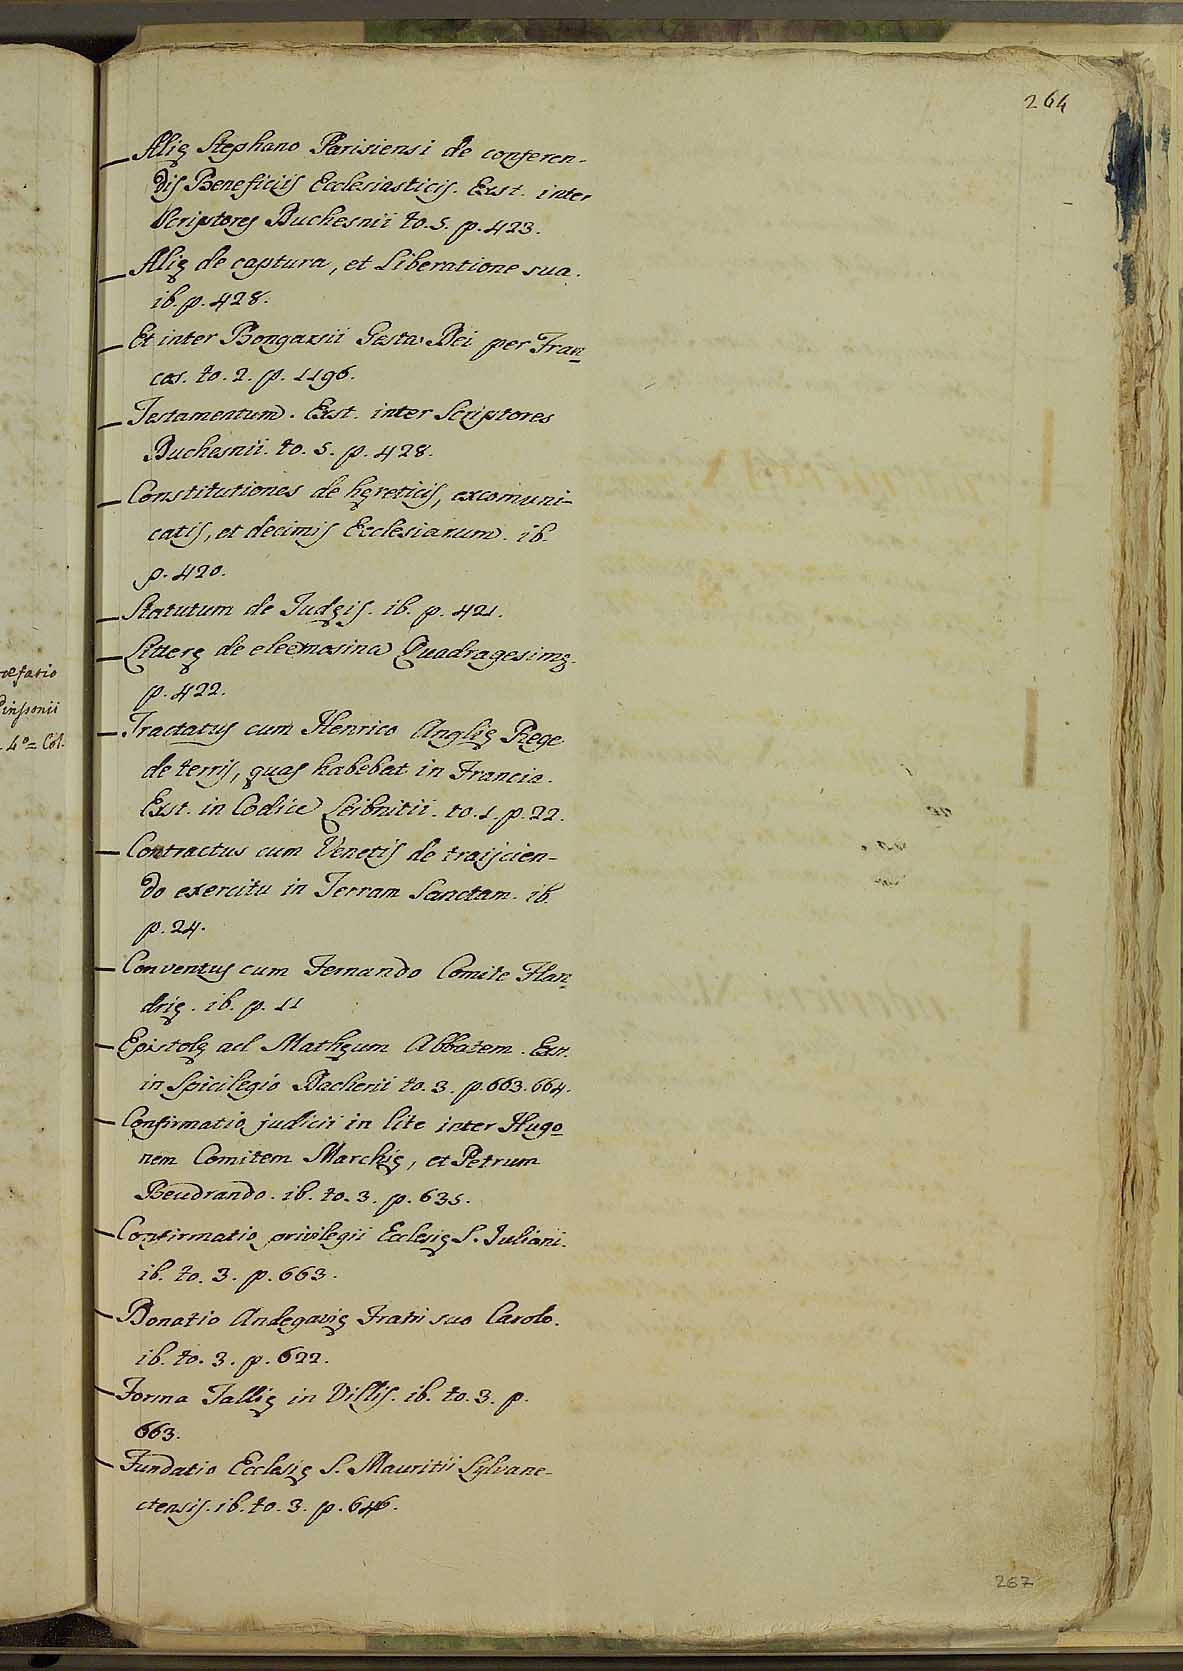 264
Alię Stephano Parisiensi de conferen-
dis Beneficiis Ecclesiasticis. Exst. inter
Scriptores Duchesnii to. 5. p. 423.
Alię de captura, et Liberatione sua.
ib. p. 428.
Et inter Bongarsii Gesta Dei per Fran
cos. to. 2. p. 1196.
Testamentum. Exst. inter Scriptores
Duchesnii. to. 5. p. 428.
Constitutiones de hęreticis, excomuni-
catis, et decimis Ecclesiarum. ib.
p. 420.
Statutum de Judęis. ib. p. 421.
Litterę de eleemosina Quadragesimę.
p. 422.
Tractatus cum Henrico Anglię Rege
de terris, quas habebat in Francia.
Exst. in Codice Leibnitii. to. 1. p. 22.
Contractus cum Venetis de traijcien-
do exercitu in Terram Sanctam. ib.
p. 24.
Conventus cum Fernando Comite Flan
drię. ib. p. 11
Epistolę ad Mathęum Abbatem. Exst.
in Spicilegio Dacherii to. 3. p. 663. 664.
Confirmatio judicii in lite inter Hugo
nem Comitem Marchię, et Petrum
Beudrando. ib. to. 3. p. 635.
Confirmatio privilegii Ecclesię S. Juliani.
ib. to. 3. p. 663.
Donatio Andegavię Fratri suo Carolo.
ib. to. 3. p. 622.
Forma Tallię in Villis. ib. to. 3. p.
663.
Fundatio Ecclesię S. Mauritii Sylvane-
ctensis. ib. to. 3. p. 646.
267